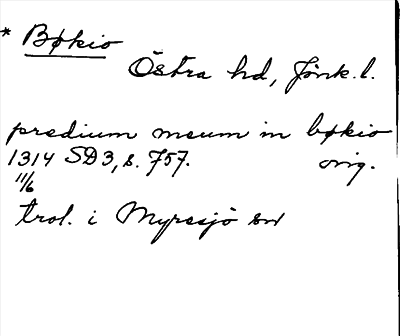 * Bøkio
Östra hd, Jönk. l.
predium meum in bøkio
1314 SD 3, s. 757. orig.
11/6
trol. i Myresjö sn